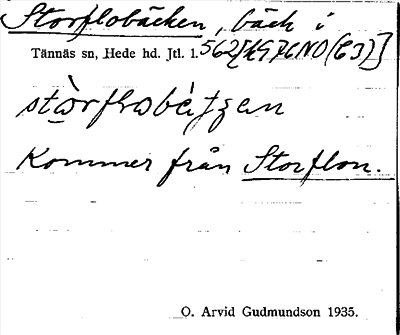 Storflobäcken, bäck i
Tännäs sn, Hede hd. Jtl. 1.562
stòrflobètzen
Kommer från Storflon.
O. Arvid Gudmundson 1935.